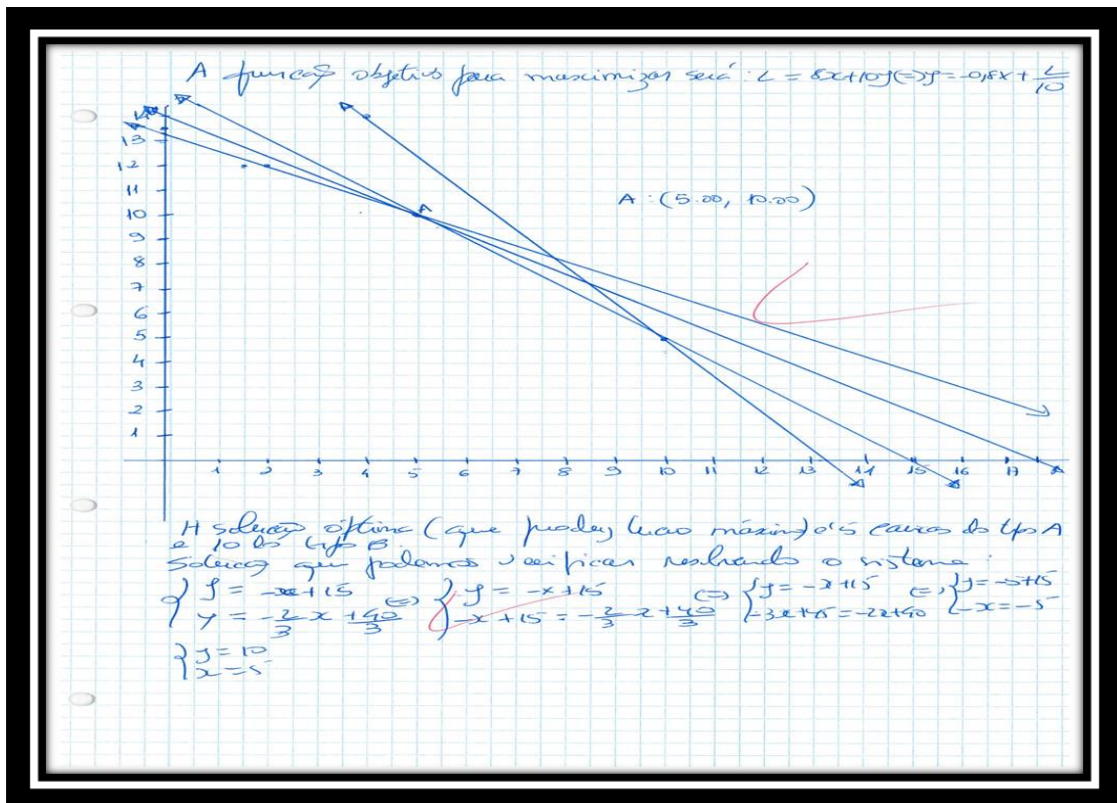 A função objetivo para maximizar será: L = 8x+10y(=)y=-0,8x+ L/10
14
13
12
11
10
9
8
7
6
5
4
3
2
1
A
A :(5.00, 10.00)
1 2 3 4 5 6 7 8 9 10 11 12 13 14 15 16 17
A solução óptima (que produz lucro máximo) é 5 caixas do tipo A
e 10 do tipo B.
Solução que podemos verificar resolvendo o sistema:
{ y = -x+15 (=) { y = -x+15 (=) { y = -x+15 (=) { y = -5+15
{ y = -2/3 x + 40/3 { -x+15 = -2/3 x + 40/3 { -3x+45 = -2x+40 { -x = -5
{ y = 10
{ x = 5